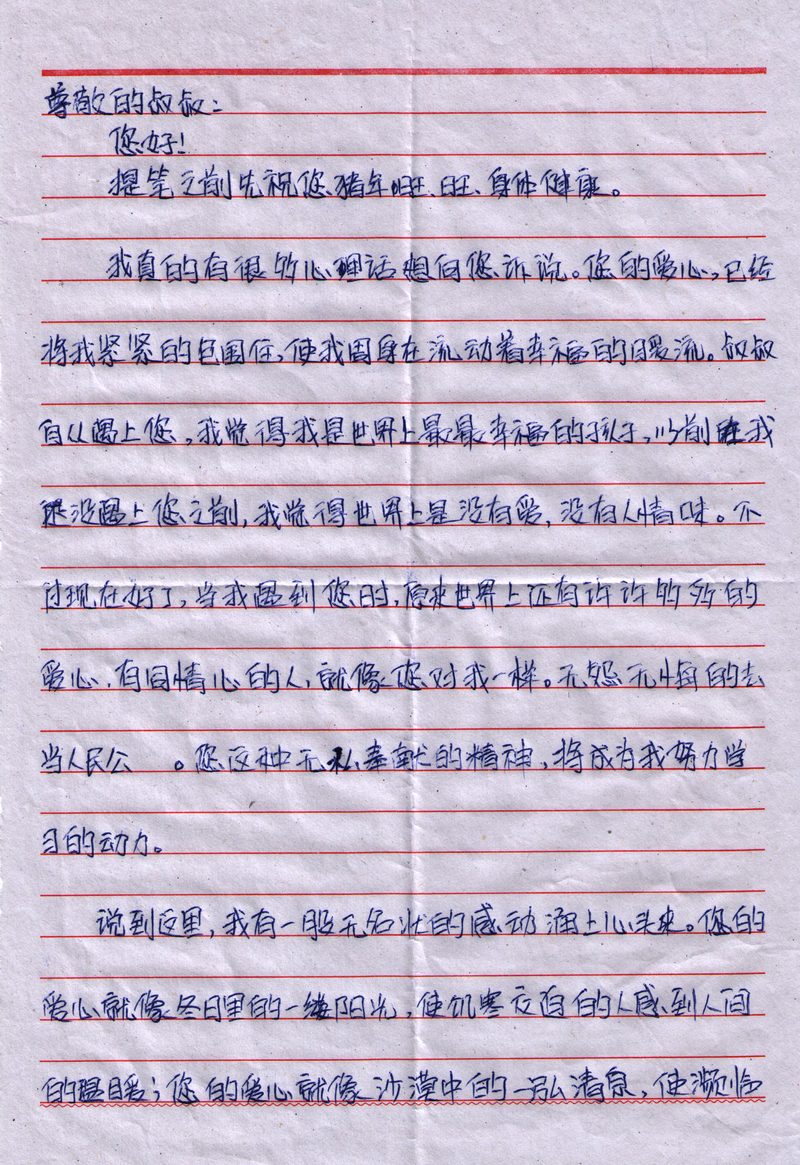 尊敬的叔叔：
您好！
提笔之前先祝您猪年旺旺、身体健康。
我真的有很多心理话想向您诉说。您的爱心，已经
将我紧紧的包围住，使我周身在流动着幸福的暖流。叔叔
自从遇上您，我觉得我是世界上最最幸福的孩子，以前在我
还没遇上您之前，我觉得世界上是没有爱，没有人情味。不
过现在好了，当我遇到您时，原来世界上还有许许多多的
爱心、有同情心的人，就像您对我一样。无怨无悔的去
当人民公 。您这种无私奉献的精神，将成为我努力学
习的动力。
说到这里，我有一股无名状的感动涌上心头来。您的
爱心就像冬日里的一缕阳光，使饥寒交迫的人感到人间
的温暖；您的爱心就像沙漠中的一泓清泉，使濒临